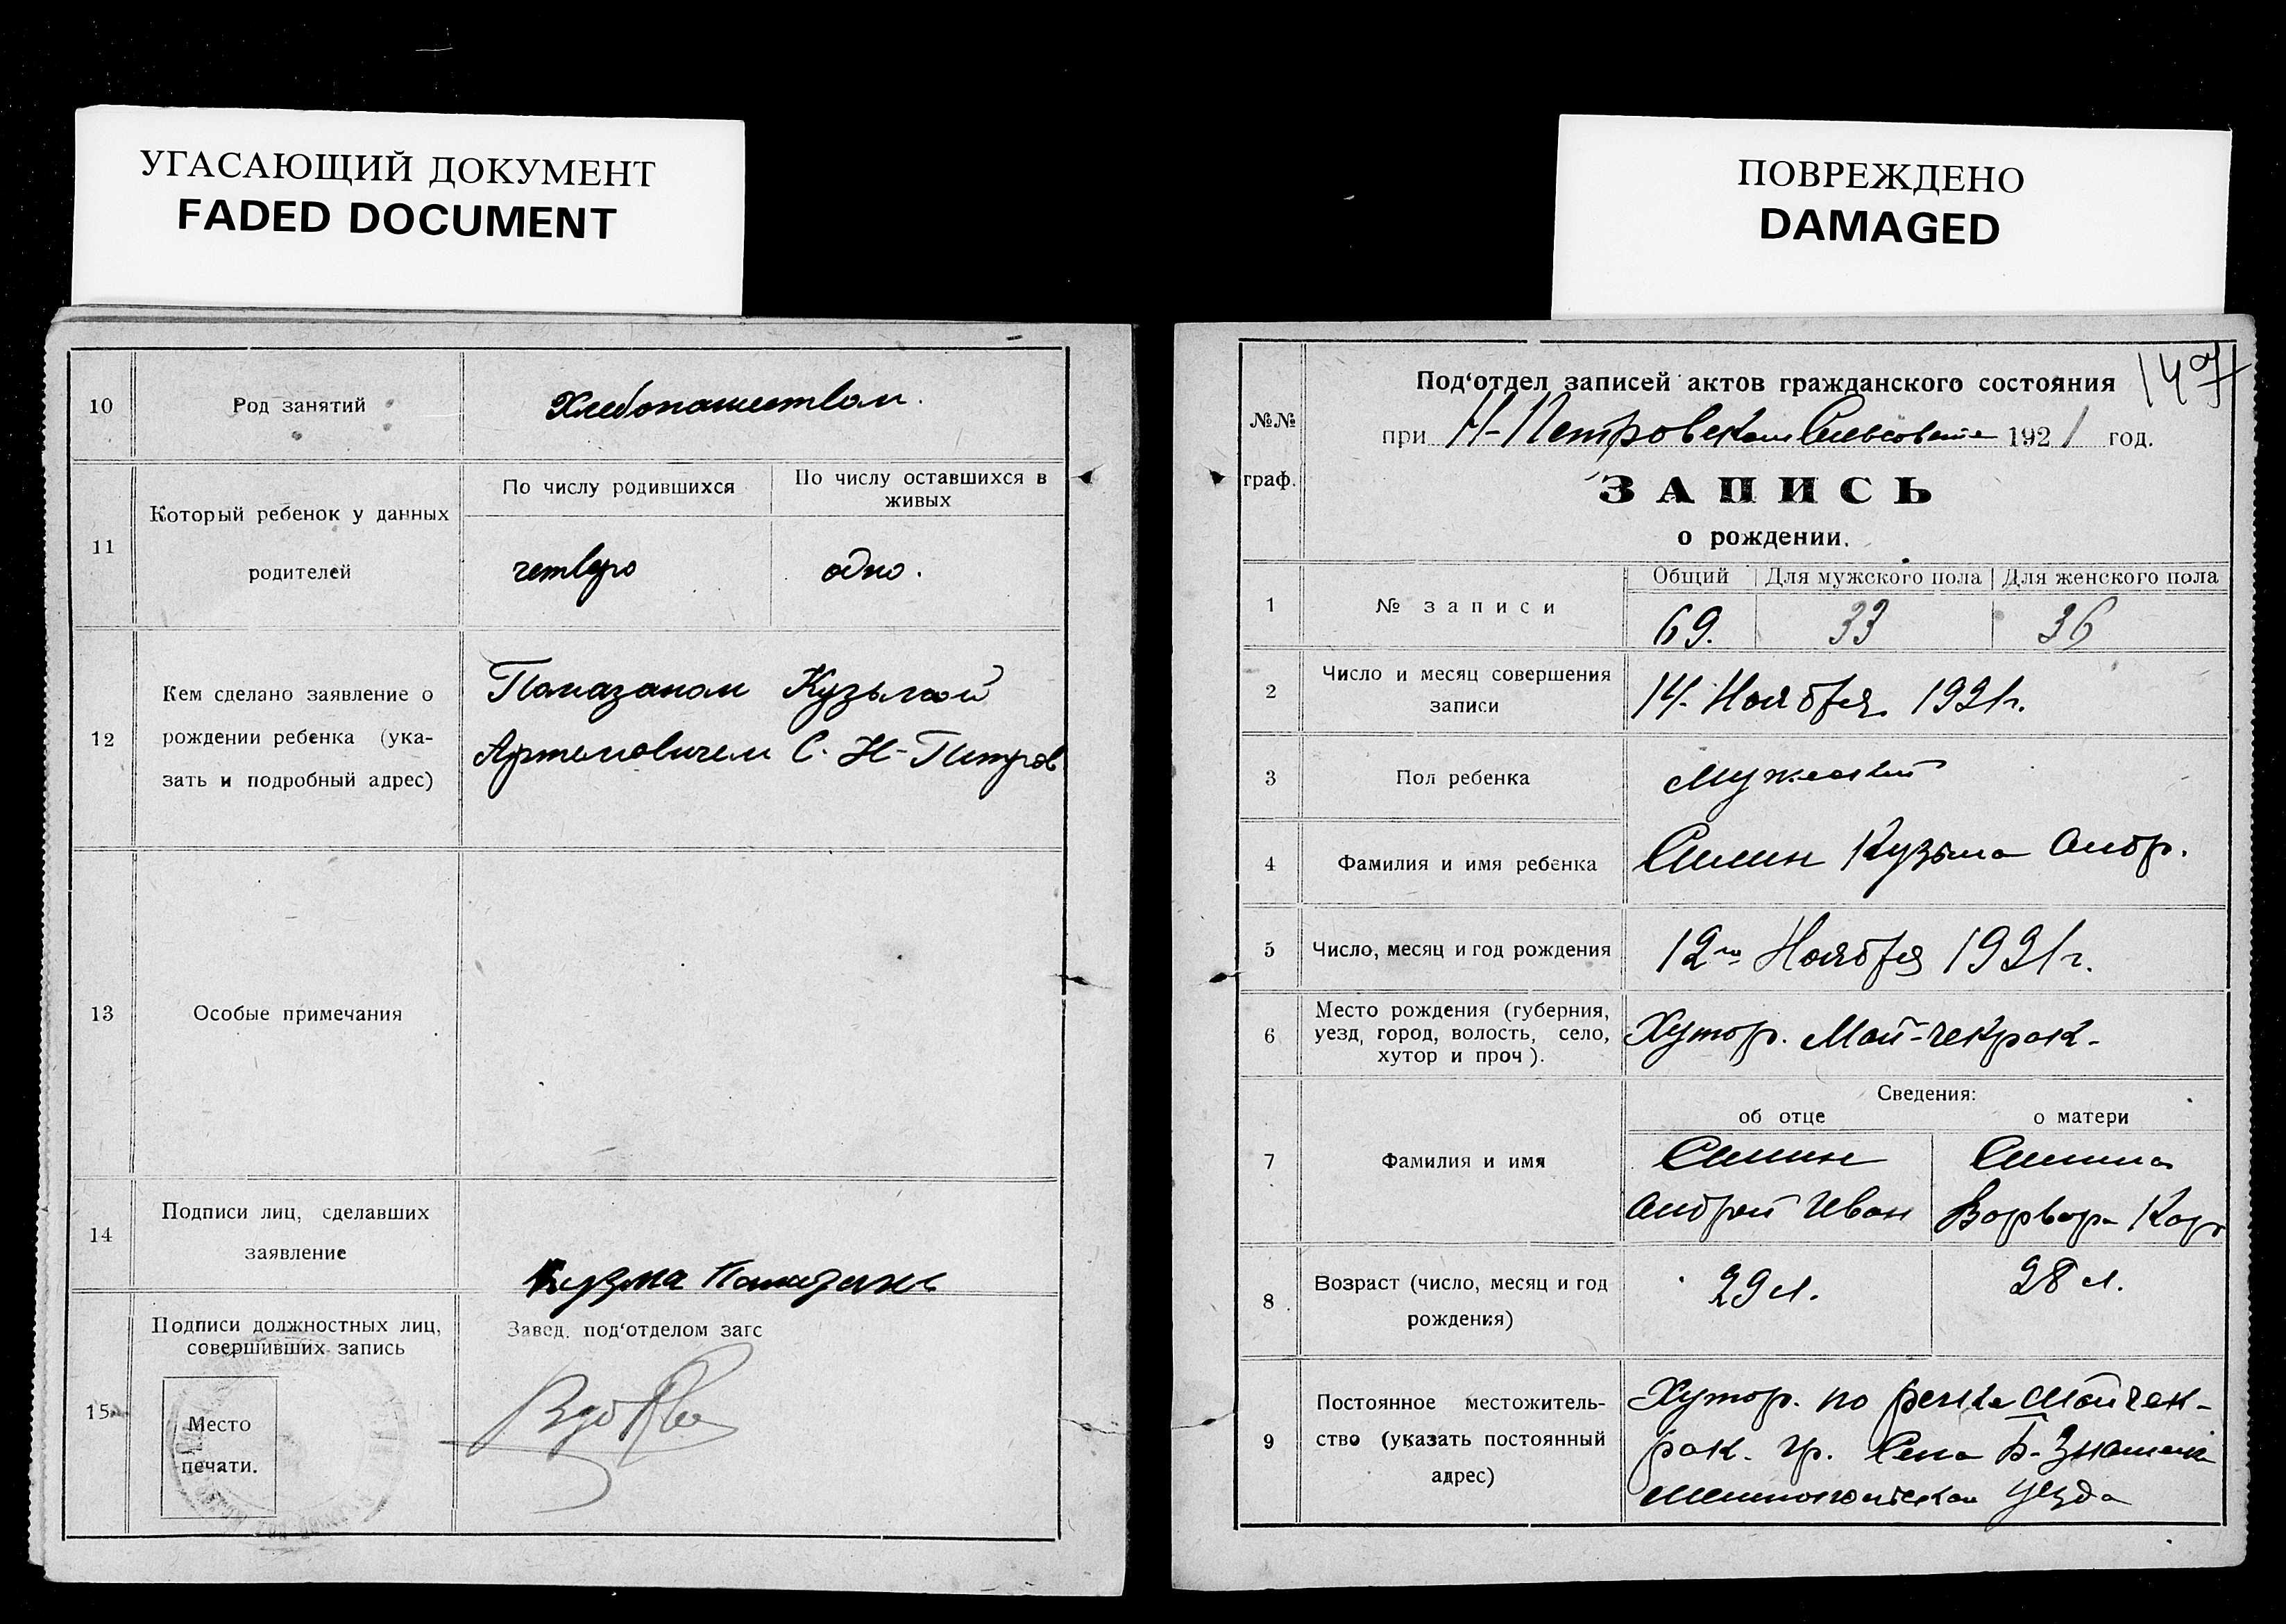 УГАСАЮЩИЙ ДОКУМЕНТ
FADED DOCUMENT
10
Род занятий
Хлебопашеством.
11
Который ребенок у данных
родителей
По числу родившихся
По числу оставшихся в
живых
четверо
одно.
12
Кем сделано заявление о
рождении ребенка (ука-
зать и подробный адрес)
Помазаном Кузьмой
Артемовичем С. Н-Петров
13
Особые примечания
14
Подписи лиц, сделавших
заявление
Кузма Помазанъ
15
Подписи должностных лиц,
совершивших запись
Место
печати.
Завед. под‘отделом загс
ПОВРЕЖДЕНО
DAMAGED
147
№№
граф.
Под‘отдел записей актов гражданского состояния
при Н-Петровском Сельсовете 1921 год.
ЗАПИСЬ
о рождении.
1
№ записи
Общий
Для мужского пола
Для женского пола
69.
33
36
2
Число и месяц совершения
записи
14. Ноября 1921г.
3
Пол ребенка
Мужеский
4
Фамилия и имя ребенка
Силин Кузьма Андр.
5
Число, месяц и год рождения
12го Ноября 1921г.
6
Место рождения (губерния,
уезд, город, волость, село,
хутор и проч).
Хутор. Май-чекрак-
Сведения:
об отце
о матери
7
Фамилия и имя
Силин
Андрей Иван
Силина
Варвара Кар
8
Возраст (число, месяц и год
рождения)
29 л.
28 л.
9
Постоянное местожитель-
ство (указать постоянный
адрес)
Хутор. по речке Майчек-
рак. гр. Села Б-Знаменк
Мелитопольскаи уезда